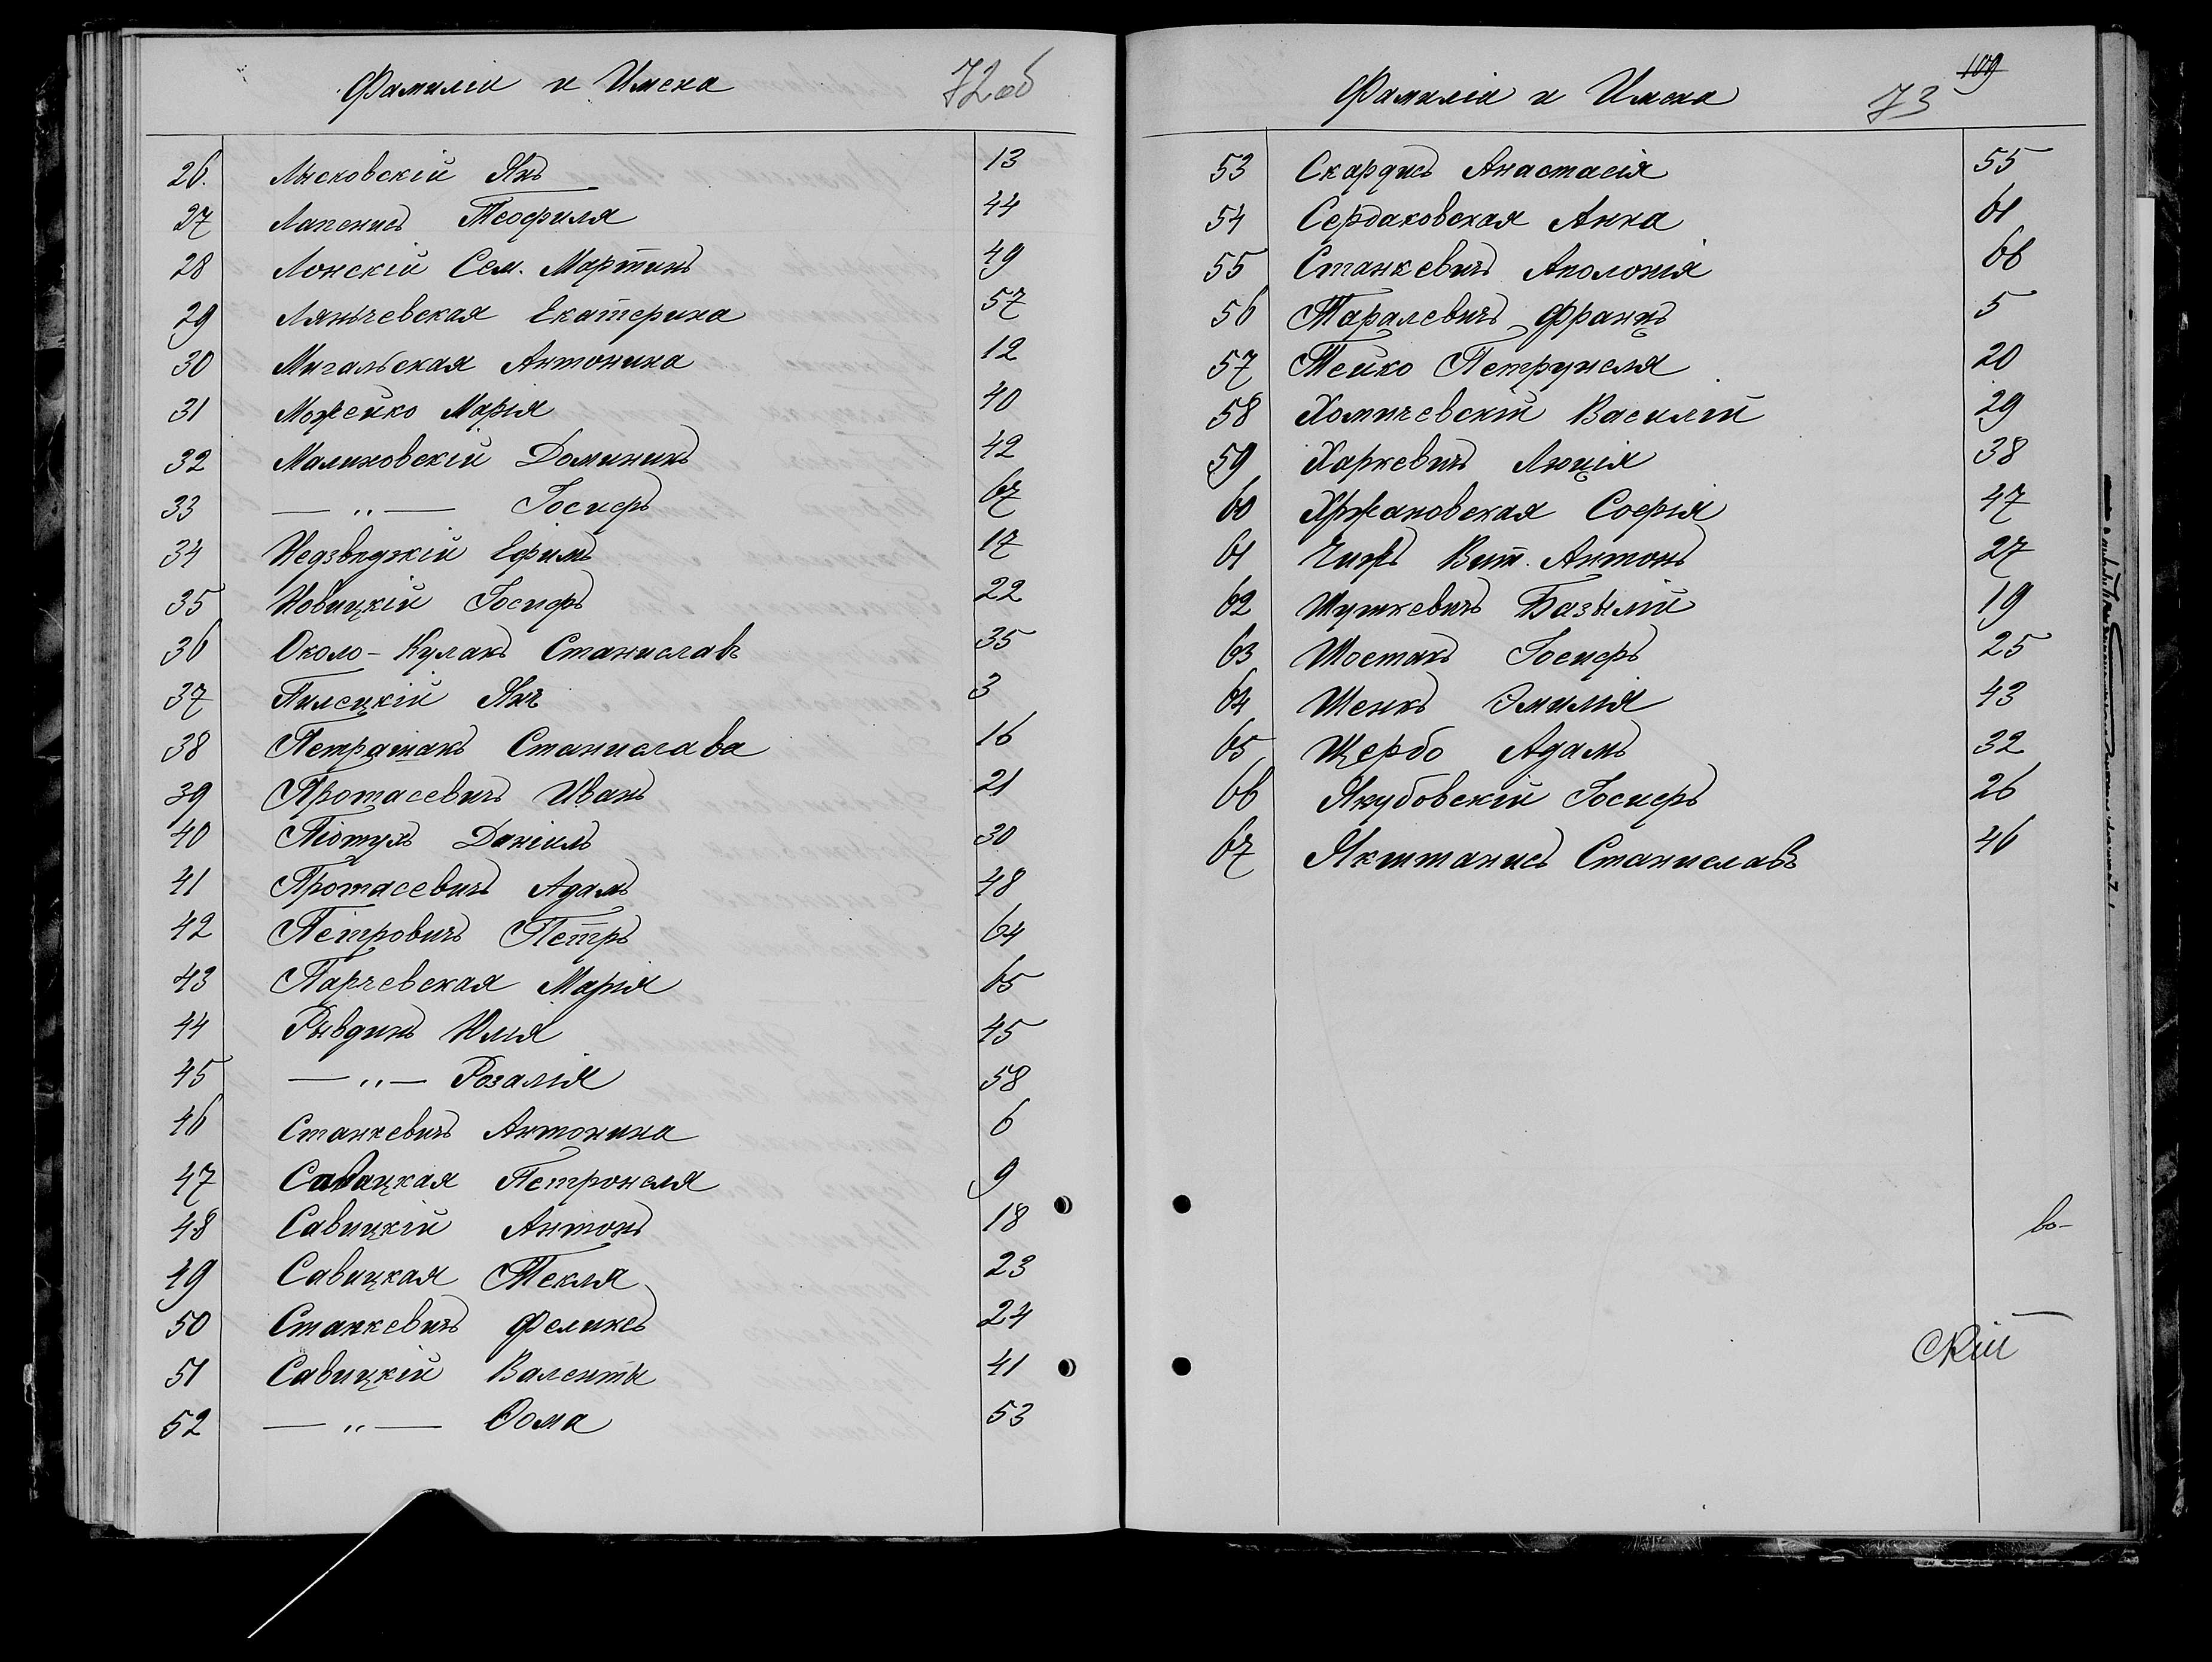 Фамилія и Имена 72 об
26. Лысковскій Янъ 13
27 Лапенисъ Теофиля 44
28 Лонскій Сем. Мартинъ 49
29 Ляньчевская Екатерина 57
30 Мигальская Антонина 12
31 Можейко Марія 40
32 Малиновскій Доминикъ 42
33 — „ — Іосифъ 67
34 Недзвѣдзкій Ефимъ 17
35 Новицкій Іосифъ 22
36 Около-Кулакъ Станиславъ 35
37 Пилецкій Янъ 3
38 Петрашакъ Станислава 16
39 Протасевичъ Иванъ 21
40 Піотухъ Даніилъ 30
41 Протасевичъ Адамъ 48
42 Петровичъ Петръ 64
43 Парчевская Марія 65
44 Рывдинъ Юлія 45
45 — „ — Розалія 58
46 Станкевичъ Антонина 6
47 Савицкая Петронеля 9
48 Савицкій Антонъ 18
49 Савицкая Текля 23
50 Станкевичъ Феликсъ 24
51 Савицкій Валенты 41
52 — „ — Ѳома 53
109
Фамилія и Имена 73
53 Скардисъ Анастасія 55
54 Сердаковская Анна 61
55 Станкевичъ Аполонія 66
56 Таралевичъ Францъ 5
57 Тейко Петрунеля 20
58 Хомичевскій Василій 29
59 Харкевичъ Люція 38
60 Хржановская Софія 47
61 Чижъ Вит. Антонъ 27
62 Шуткевичъ Базылій 19
63 Шостакъ Іосифъ 25
64 Шенкъ Эмилія 43
65 Щербо Адамъ 32
66 Якубовскій Іосифъ 26
67 Якштанисъ Станиславъ 46
во-
скій